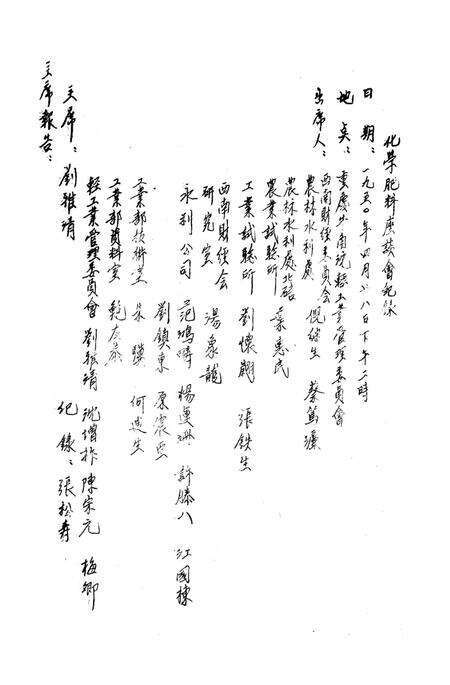 化學肥料座談會紀錄
日期：一九五〇年四月廿八日下午二時
地点：重慶
西南財經委員會
輕工業管理委員會
出席人：
農林水利處
蔡篤
農林水利處北碚
農業試驗所
葉惠民
工業試驗所 劉懷 張鉄生
西南財經會
研究室
湯象龍
永利公司 范鴻疇 楊運珊 許滕八 江國棟
劉鎮東 原震西
工業部技術室 朱 何迺生
工業部資料室 鮑
輕工業管理委員會 劉雅靖 沈增祚 陳宗元 梅卿
主席：劉雅靖 紀錄：張松壽
主席報告：